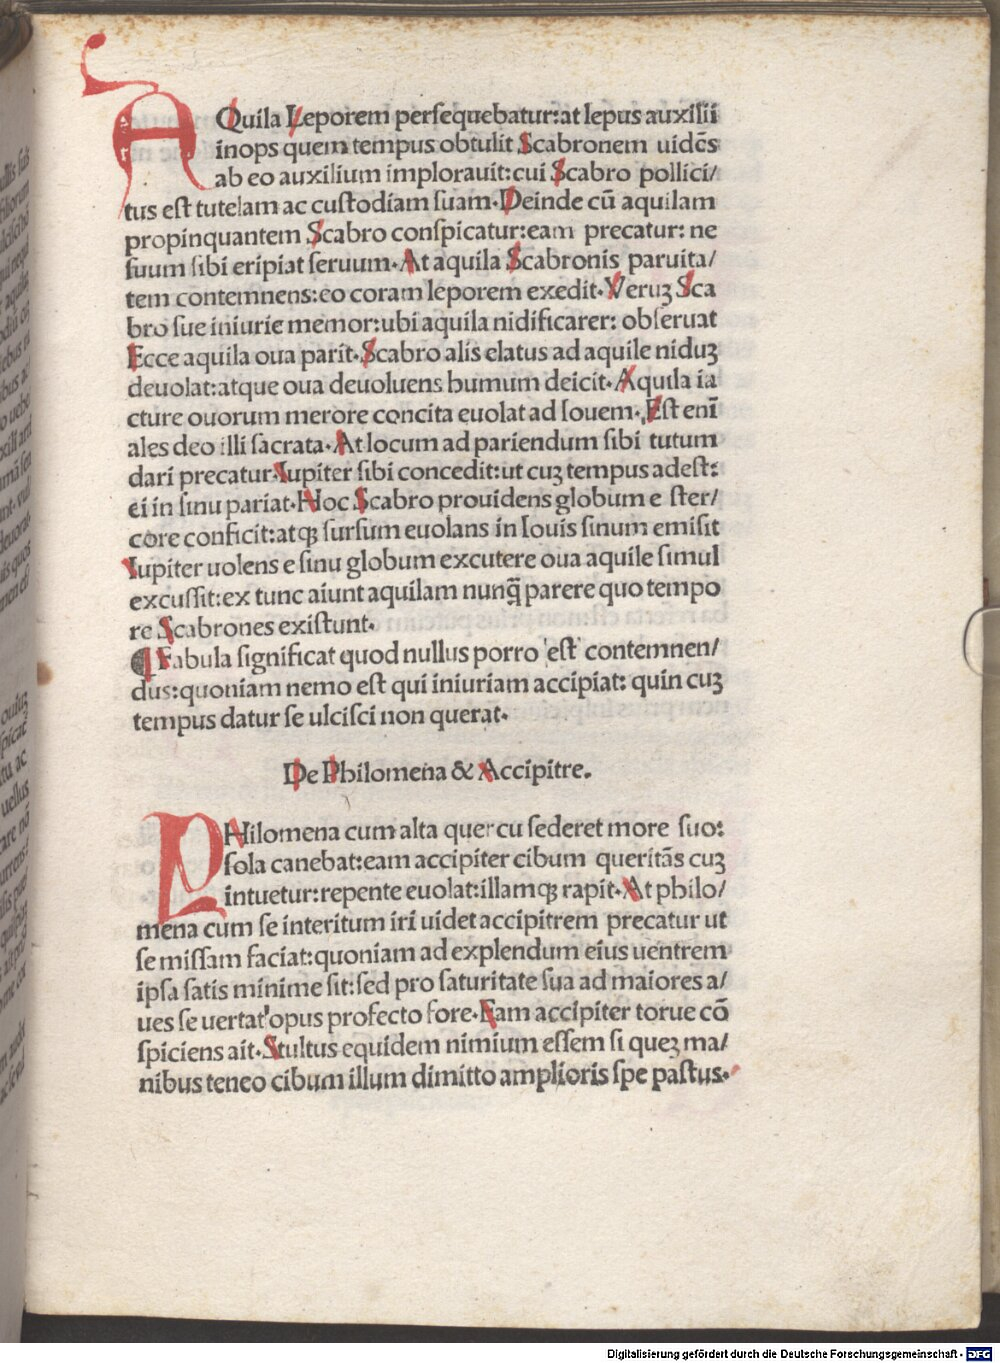 AQuila Leporem persequebatur:at lepus auxilii
inops quem tempus obtulit Scabronem uidēs
ab eo auxilium implorauit:cui Scabro pollici/
tus est tutelam ac custodiam suam.Deinde cū aquilam
propinquantem Scabro conspicatur:eam precatur: ne
suum sibi eripiat seruum.At aquila Scabronis paruita/
tem contemnens:eo coram leporem exedit.Veruꝫ Sca
bro sue iniurie memor:ubi aquila nidificarer: obseruat
Ecce aquila oua parit.Scabro alis elatus ad aquile niduꝫ
deuolat:atque oua deuoluens bumum deicit.Aquila ia
cture ouorum merore concita euolat ad Iouem.Est enī
ales deo illi sacrata.At locum ad pariendum sibi tutum
dari precatur.Iupiter sibi concedit:ut cuꝫ tempus adest:
ei in sinu pariat.Hoc Scabro prouidens globum e ster/
core conficit:atqꝫ sursum euolans in Iouis sinum emisit
Iupiter uolens e sinu globum excutere oua aquile simul
excussit:ex tunc aiunt aquilam nunq̄ parere quo tempo
re Scabrones existunt.
¶ Fabula significat quod nullus porro est contemnen/
dus:quoniam nemo est qui iniuriam accipiat: quin cuꝫ
tempus datur se ulcisci non querat.
De Philomena & Accipitre.
PHilomena cum alta quercu sederet more suo:
sola canebat:eam accipiter cibum queritās cuꝫ
intuetur:repente euolat:illamqꝫ rapit.At philo/
mena cum se interitum iri uidet accipitrem precatur ut
se missam faciat:quoniam ad explendum eius uentrem
ipsa satis minime sit:sed pro saturitate sua ad maiores a/
ues se uertat'opus profecto fore.Eam accipiter torue cō
spiciens ait.Stultus equidem nimium essem si queꝫ ma/
nibus teneo cibum illum dimitto amplioris spe pastus.
Digitalisierung gefördert durch die Deutsche Forschungsgemeinschaft - DFG